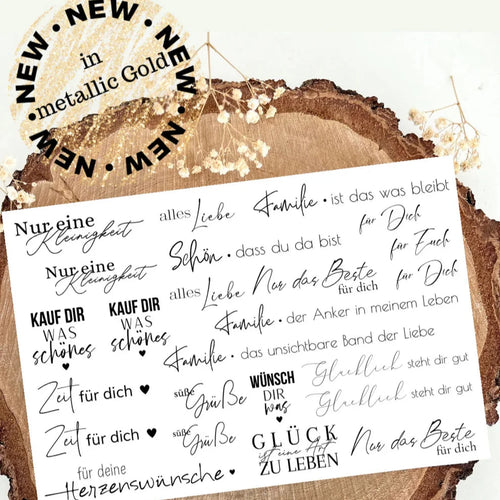 NEW • NEW • NEW • NEW • NEW • NEW •
in
metallic Gold
Nur eine
Kleinigkeit
alles Liebe
Familie • ist das was bleibt
für Dich
Schön • dass du da bist
für Euch
Nur eine
Kleinigkeit
alles Liebe
Nur das Beste
für dich
für Dich
KAUF DIR
WAS
schönes
KAUF DIR
WAS
schönes
Familie • der Anker in meinem Leben
Familie • das unsichtbare Band der Liebe
Zeit für dich
süße
Grüße
WÜNSCH
DIR
was
Glücklich steht dir gut
Glücklich steht dir gut
Zeit für dich
süße
Grüße
GLÜCK
ist eine Art
ZU LEBEN
Nur das Beste
für dich
für deine
Herzenswünsche